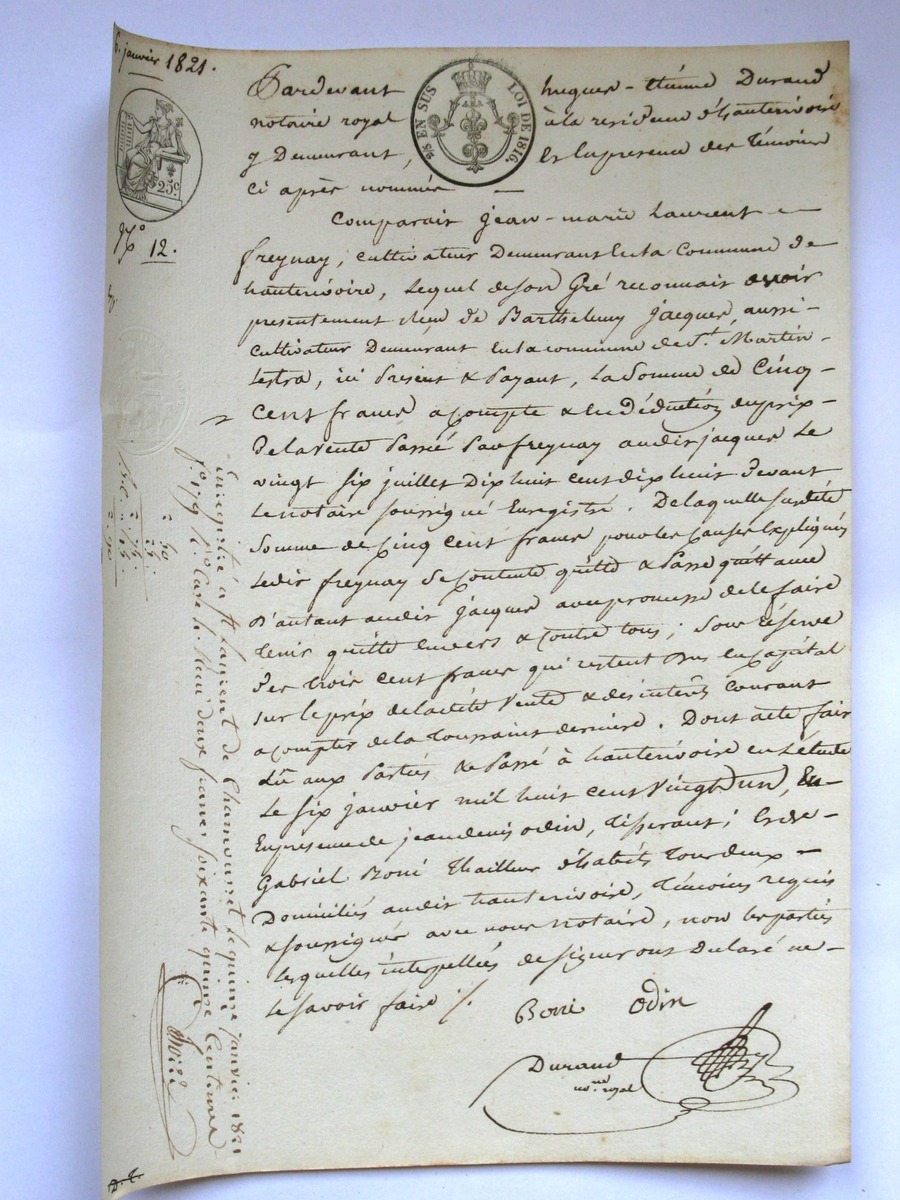 6. janvier 1821.
25c.
N.° 12.
2/5 EN SUS LOI DE 1816.
Pardevant hugues-étienne Durand
notaire royal à la residence d'hauterivoire
y Demeurant, En la presence des Témoins
ci après nommés —
Comparait jean-marie Laurent
freynay, cultivateur Demeurant En la Commune de
hauterivoire, Lequel de son Gré reconnait avoir
presentement Reçu de Barthelemy jacques, aussi
cultivateur Demeurant En la commune de St. Martin
Lestra, ici Present & Payant, La Somme de Cinq
Cent francs acompte & En Déduction du prix
De la vente Passée Par freynay audit jacques Le
vingt six juillet Dix huit cent dix huit Devant
Le notaire soussigné Enregistré. De laquelle susdite
Somme de Cinq Cent francs pour les causes Expliquées
Ledit freynay se Contente quitte & Passe quittance
D'autant audit jacques avec promesse de le faire
tenir quitte Envers & Contre tous; Sous réserve
Des trois cent francs qui restent Dus En Capital
sur le prix de ladite vente & des interêts courant
a compter de la Toussaint derniere. Dont acte fait
Lû aux Parties & Passé à hauterivoire En L'étude
Le six janvier mil huit cent vingt un, En
En présence de jean denis odin, Tisserant; Et de
Gabriel Boni Thailleur d'habits Tous deux
Domiciliés audit hauterivoire, Témoins requis
& soussignés avec nous notaire, non les parties
lesquelles interpellées de signer ont Déclaré ne
Le savoir faire ./.
Boni Odin
Durand
no.re royal
Enregistré à St. Laurent de Chamousset le quinze janvier 1821
f.° 179 R.° Case 4. Reçu deux francs soixante quinze Centimes
2. 50.
. 25.
2. 75.